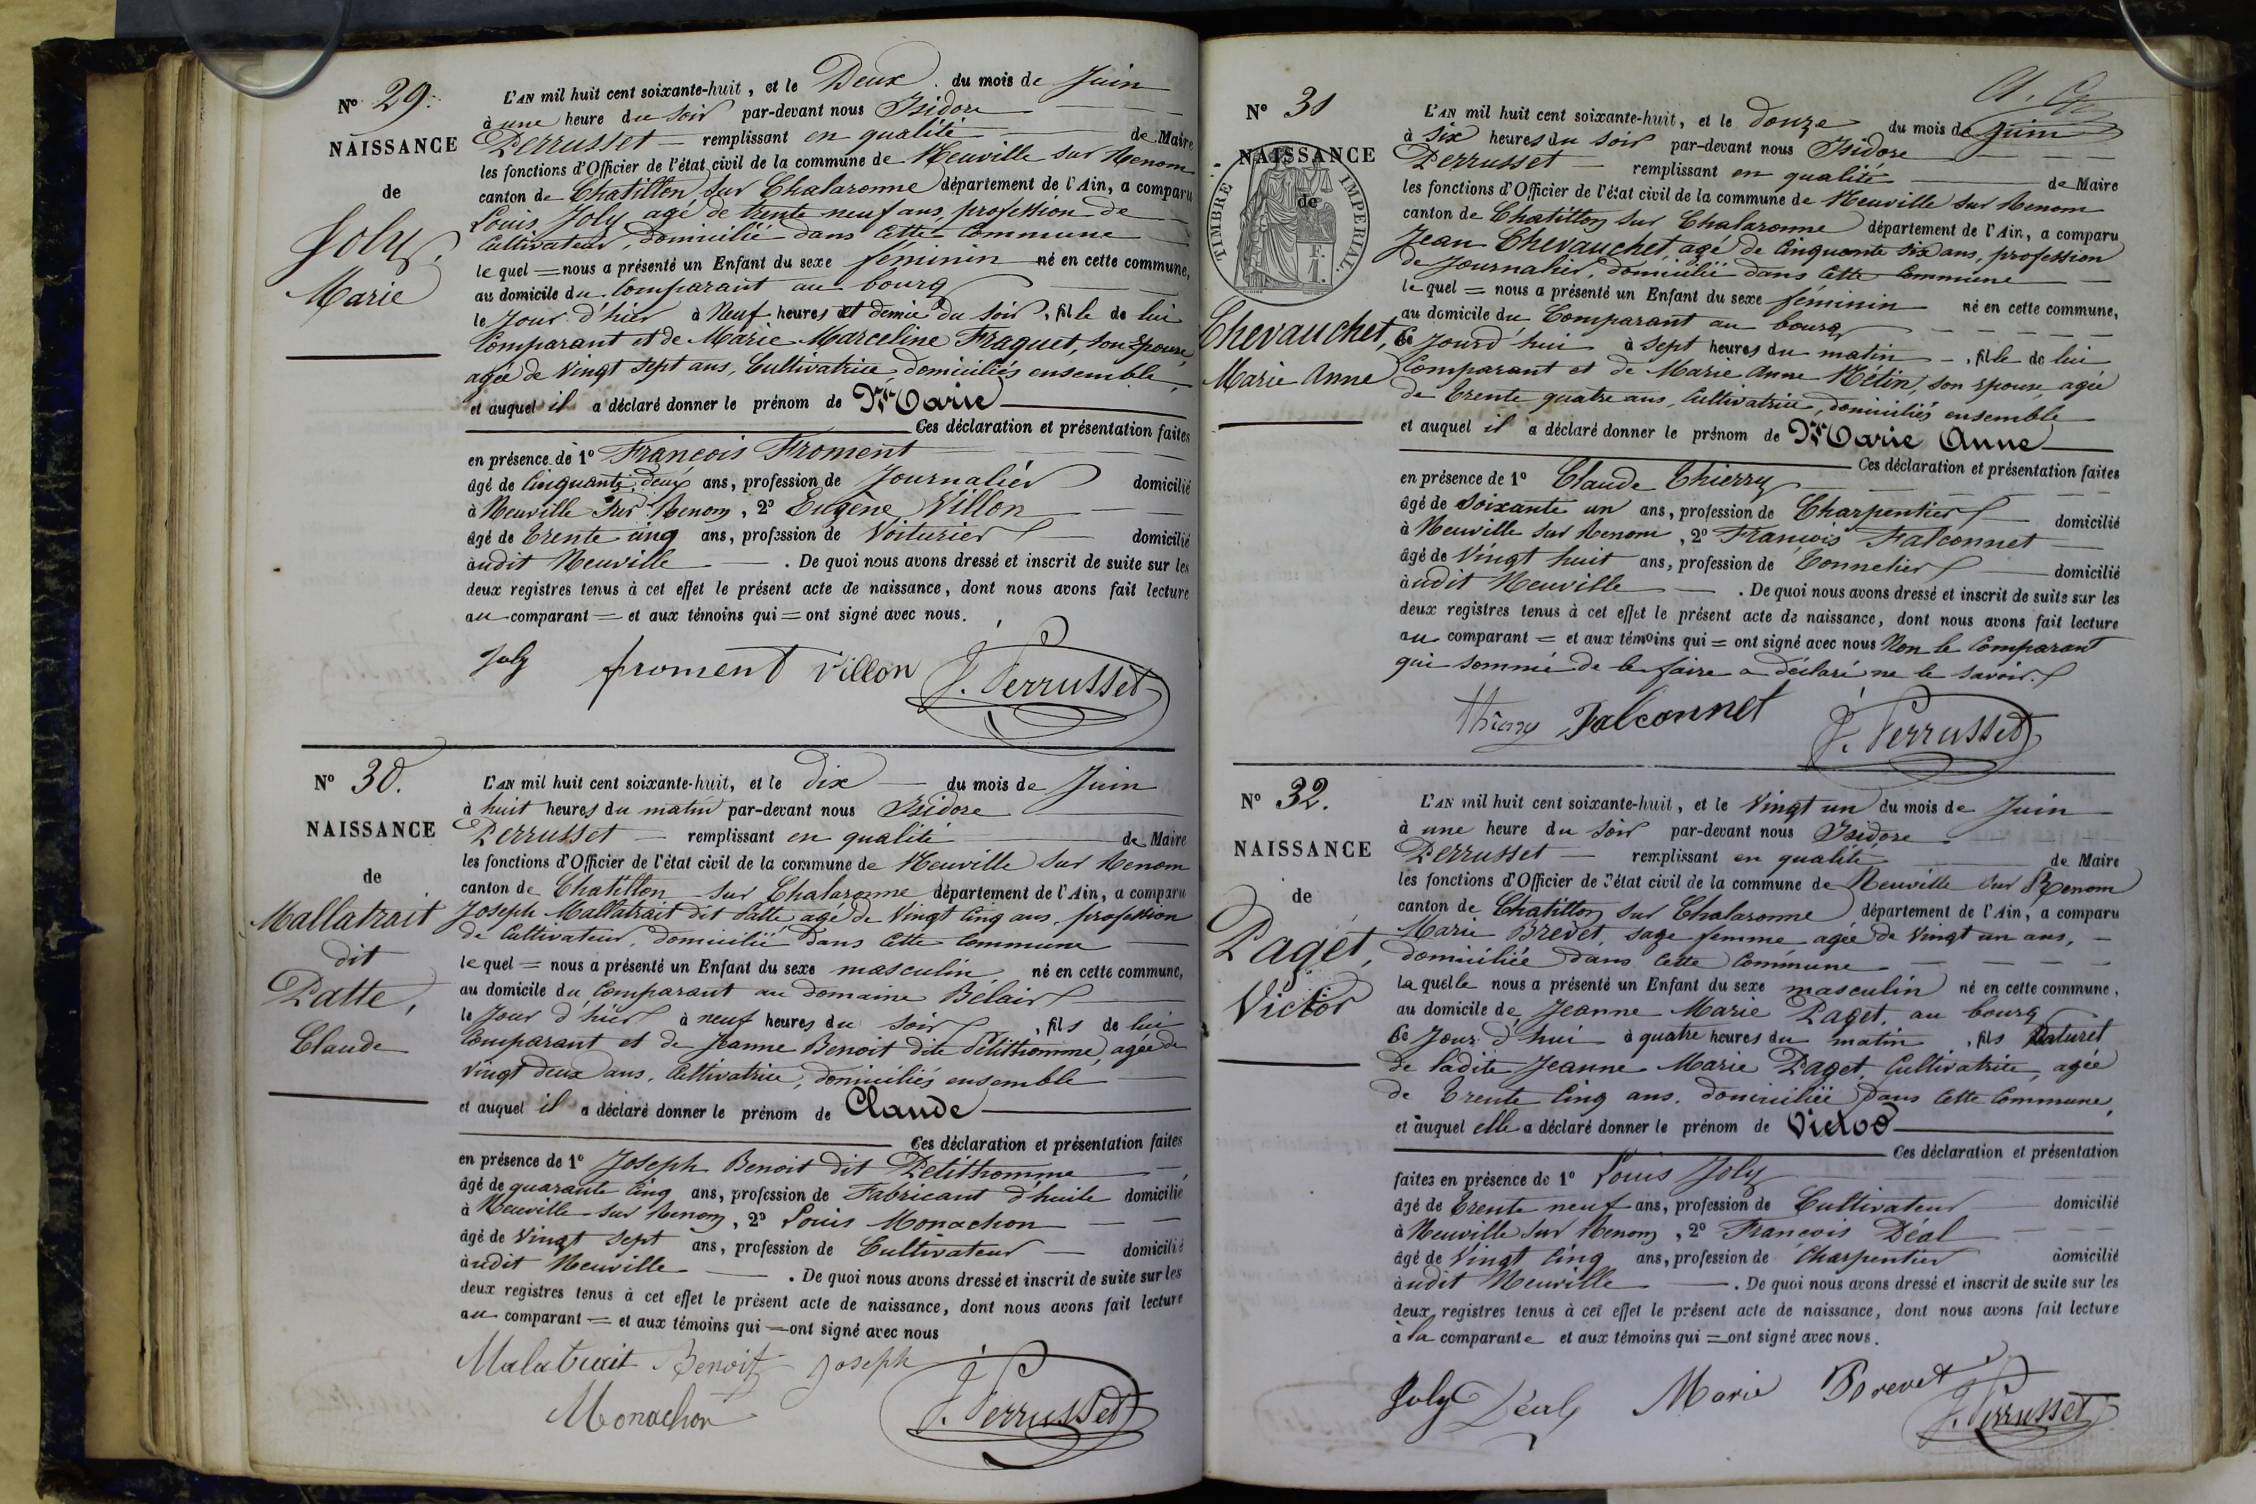 Nº 29.
NAISSANCE
de
Joly,
Marie
L'AN mil huit cent soixante-huit, et le Deux du mois de Juin
à une heure du soir par-devant nous Isidore
Perrusset remplissant en qualité de Maire
les fonctions d'Officier de l'état civil de la commune de Neuville sur Renom
canton de Chatillon sur Chalaronne département de l'Ain, a comparu
Louis Joly agé de trente neuf ans, profession de
Cultivateur, domicilié dans cette Commune
le quel = nous a présenté un Enfant du sexe féminin né en cette commune,
au domicile du Comparant au bourg
le Jour d'hier à Neuf heures et demie du soir, fille de lui
Comparant et de Marie Marceline Fraquet, son Epouse,
agée de Vingt sept ans, Cultivatrice, domiciliés ensemble,
et auquel il a déclaré donner le prénom de Marie
Ces déclaration et présentation faites
en présence de 1º François Froment
âgé de Cinquante deux ans, profession de Journalier domicilié
à Neuville sur Renom, 2º Eugène Villon
âgé de trente cinq ans, profession de Voiturier domicilié
àudit Neuville. De quoi nous avons dressé et inscrit de suite sur les
deux registres tenus à cet effet le présent acte de naissance, dont nous avons fait lecture
au comparant = et aux témoins qui = ont signé avec nous.
Joly froment Villon J. Perrusset
Nº 30.
NAISSANCE
de
Mallatrait
dit
Patte,
Claude
L'AN mil huit cent soixante-huit, et le dix du mois de Juin
à huit heures du matin par-devant nous Isidore
Perrusset remplissant en qualité de Maire
les fonctions d'Officier de l'état civil de la commune de Neuville sur Renom
canton de Chatillon sur Chalaronne département de l'Ain, a comparu
Joseph Mallatrait dit Patte agé de Vingt Cinq ans, profession
de Cultivateur, domicilié dans cette Commune
le quel = nous a présenté un Enfant du sexe masculin né en cette commune,
au domicile du Comparant au domaine Bélair
le Jour d'hier à neuf heures du soir, fils de lui
Comparant et de Jeanne Benoit dite Petithomme, agée de
Vingt deux ans, Cultivatrice, domiciliés ensemble
et auquel il a déclaré donner le prénom de Claude
Ces déclaration et présentation faites
en présence de 1º Joseph Benoit dit Petithomme,
âgé de quarante Cinq ans, profession de Fabricant d'huile domicilié
à Neuville sur Renom, 2º Louis Monachon
âgé de Vingt sept ans, profession de Cultivateur domicilié
àudit Neuville. De quoi nous avons dressé et inscrit de suite sur les
deux registres tenus à cet effet le présent acte de naissance, dont nous avons fait lecture
au comparant = et aux témoins qui = ont signé avec nous
Malatrait Benoit Joseph
Monachon J. Perrusset
Nº 31
NAISSANCE
de
TIMBRE IMPERIAL.
Chevauchet,
Marie Anne
L'AN mil huit cent soixante-huit, et le douze du mois de Juin
à six heures du soir par-devant nous Isidore
Perrusset remplissant en qualité de Maire
les fonctions d'Officier de l'état civil de la commune de Neuville sur Renom
canton de Chatillon sur Chalaronne département de l'Ain, a comparu
Jean Chevauchet, agé de Cinquante six ans, profession
de Journalier, domicilié dans cette Commune
le quel = nous a présenté un Enfant du sexe féminin né en cette commune,
au domicile du Comparant au bourg
Ce Jourd'hui à sept heures du matin, fille de lui
Comparant et de Marie Anne Mélin, son Epouse, agée
de Trente quatre ans, Cultivatrice, domiciliés ensemble
et auquel il a déclaré donner le prénom de Marie Anne
Ces déclaration et présentation faites
en présence de 1º Claude Thierry
âgé de soixante un ans, profession de Charpentier domicilié
à Neuville sur Renom, 2º François Falconnet
âgé de Vingt huit ans, profession de Tonnelier domicilié
àudit Neuville. De quoi nous avons dressé et inscrit de suite sur les
deux registres tenus à cet effet le présent acte de naissance, dont nous avons fait lecture
au comparant = et aux témoins qui = ont signé avec nous Non le Comparant
qui sommé de le faire a déclaré ne le savoir.
thierry Falconnet J. Perrusset
Nº 32.
NAISSANCE
de
Paget,
Victor
L'AN mil huit cent soixante-huit, et le Vingt un du mois de Juin
à une heure du soir par-devant nous Isidore
Perrusset remplissant en qualité de Maire
les fonctions d'Officier de l'état civil de la commune de Neuville sur Renom
canton de Chatillon sur Chalaronne département de l'Ain, a comparu
Marie Brevet, sage femme agée de Vingt un ans,
domiciliée dans cette Commune
la quelle nous a présenté un Enfant du sexe masculin né en cette commune,
au domicile de Jeanne Marie Paget, au bourg
Ce Jour d'hui à quatre heures du matin, fils Naturel
de ladite Jeanne Marie Paget, Cultivatrice, agée
de Trente Cinq ans, domiciliée dans cette Commune,
et auquel elle a déclaré donner le prénom de Victor
Ces déclaration et présentation
faites en présence de 1º Louis Joly
âgé de Trente neuf ans, profession de Cultivateur domicilié
à Neuville sur Renom, 2º François Déal
âgé de Vingt Cinq ans, profession de Charpentier domicilié
àudit Neuville. De quoi nous avons dressé et inscrit de suite sur les
deux registres tenus à cet effet le présent acte de naissance, dont nous avons fait lecture
à la comparante et aux témoins qui = ont signé avec nous.
Joly Déal Marie Brevet J. Perrusset